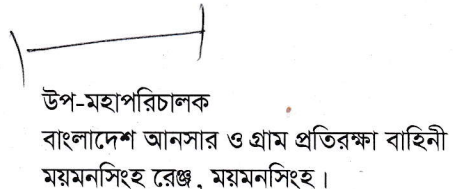 উপ-মহাপরিচালক
বাংলাদেশ আনসার ও গ্রাম প্রতিরক্ষা বাহিনী
ময়মনসিংহ রেঞ্জ, ময়মনসিংহ।